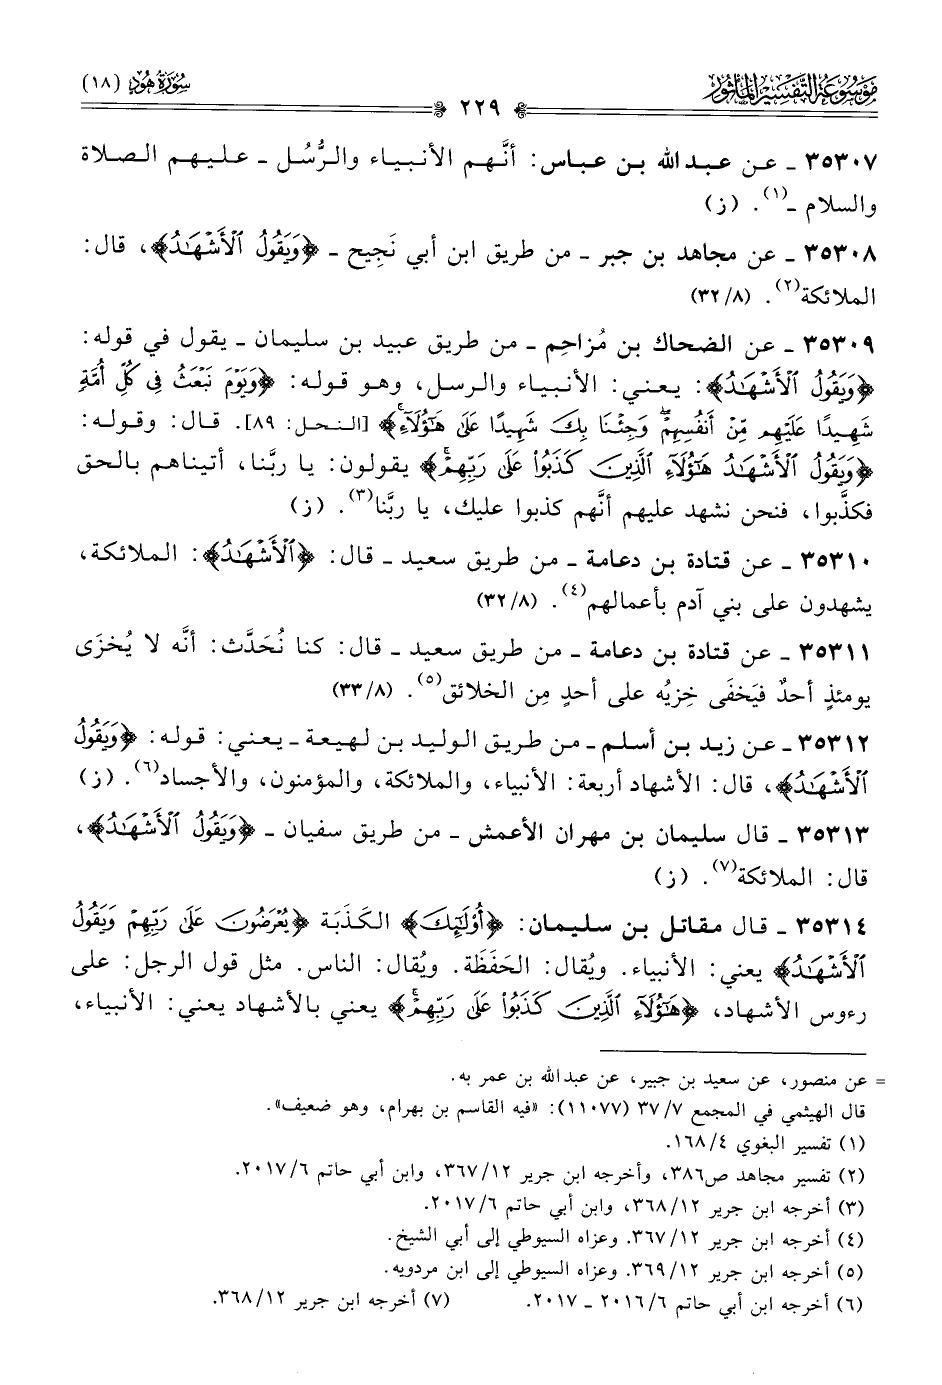 مَوْسُوعَة التَّفْسِير المَأثُور
سُورَة هُود (١٨)
٢٢٩
٣٥٣٠٧ ـ عن عبد الله بن عباس: أنَّهم الأنبياء والرُّسُل ـ عليهم الصلاة
والسلام ـ(١). (ز)
٣٥٣٠٨ ـ عن مجاهد بن جبر ـ من طريق ابن أبي نَجِيح ـ ﴿وَيَقُولُ ٱلْأَشْهَـٰدُ﴾، قال:
الملائكة(٢). (٨/ ٣٢)
٣٥٣٠٩ ـ عن الضحاك بن مُزاحِم ـ من طريق عبيد بن سليمان ـ يقول في قوله:
﴿وَيَقُولُ ٱلْأَشْهَـٰدُ﴾: يعني: الأنبياء والرسل، وهو قوله: ﴿وَيَوْمَ نَبْعَثُ فِى كُلِّ أُمَّةٍ
شَهِيدًا عَلَيْهِم مِّنْ أَنفُسِهِمْۖ وَجِئْنَا بِكَ شَهِيدًا عَلَىٰ هَـٰٓؤُلَآءِۚ﴾ [النحل: ٨٩]. قال: وقوله:
﴿وَيَقُولُ ٱلْأَشْهَـٰدُ هَـٰٓؤُلَآءِ ٱلَّذِينَ كَذَبُوا۟ عَلَىٰ رَبِّهِمْۚ﴾ يقولون: يا ربَّنا، أتيناهم بالحق
فكذَّبوا، فنحن نشهد عليهم أنَّهم كذبوا عليك، يا ربَّنا(٣). (ز)
٣٥٣١٠ ـ عن قتادة بن دعامة ـ من طريق سعيد ـ قال: ﴿ٱلْأَشْهَـٰدُ﴾: الملائكة،
يشهدون على بني آدم بأعمالهم(٤). (٨/ ٣٢)
٣٥٣١١ ـ عن قتادة بن دعامة ـ من طريق سعيد ـ قال: كنا نُحَدَّث: أنَّه لا يُخزَى
يومئذٍ أحدٌ فيَخفَى خِزيُه على أحدٍ مِن الخلائق(٥). (٨/ ٣٣)
٣٥٣١٢ ـ عن زيد بن أسلم ـ من طريق الوليد بن لهيعة ـ يعني: قوله: ﴿وَيَقُولُ
ٱلْأَشْهَـٰدُ﴾، قال: الأشهاد أربعة: الأنبياء، والملائكة، والمؤمنون، والأجساد(٦). (ز)
٣٥٣١٣ ـ قال سليمان بن مهران الأعمش ـ من طريق سفيان ـ ﴿وَيَقُولُ ٱلْأَشْهَـٰدُ﴾،
قال: الملائكة(٧). (ز)
٣٥٣١٤ ـ قال مقاتل بن سليمان: ﴿أُو۟لَـٰٓئِكَ﴾ الكَذَبة ﴿يُعْرَضُونَ عَلَىٰ رَبِّهِمْ وَيَقُولُ
ٱلْأَشْهَـٰدُ﴾ يعني: الأنبياء. ويُقال: الحَفَظَة. ويُقال: الناس. مثل قول الرجل: على
رءوس الأشهاد، ﴿هَـٰٓؤُلَآءِ ٱلَّذِينَ كَذَبُوا۟ عَلَىٰ رَبِّهِمْۚ﴾ يعني بالأشهاد يعني: الأنبياء،
= عن منصور، عن سعيد بن جبير، عن عبد الله بن عمر به.
قال الهيثمي في المجمع ٧/ ٣٧ (١١٠٧٧): «فيه القاسم بن بهرام، وهو ضعيف».
(١) تفسير البغوي ٤/ ١٦٨.
(٢) تفسير مجاهد ص٣٨٦، وأخرجه ابن جرير ١٢/ ٣٦٧، وابن أبي حاتم ٦/ ٢٠١٧.
(٣) أخرجه ابن جرير ١٢/ ٣٦٨، وابن أبي حاتم ٦/ ٢٠١٧.
(٤) أخرجه ابن جرير ١٢/ ٣٦٧. وعزاه السيوطي إلى أبي الشيخ.
(٥) أخرجه ابن جرير ١٢/ ٣٦٩. وعزاه السيوطي إلى ابن مردويه.
(٦) أخرجه ابن أبي حاتم ٦/ ٢٠١٦ ـ ٢٠١٧. (٧) أخرجه ابن جرير ١٢/ ٣٦٨.